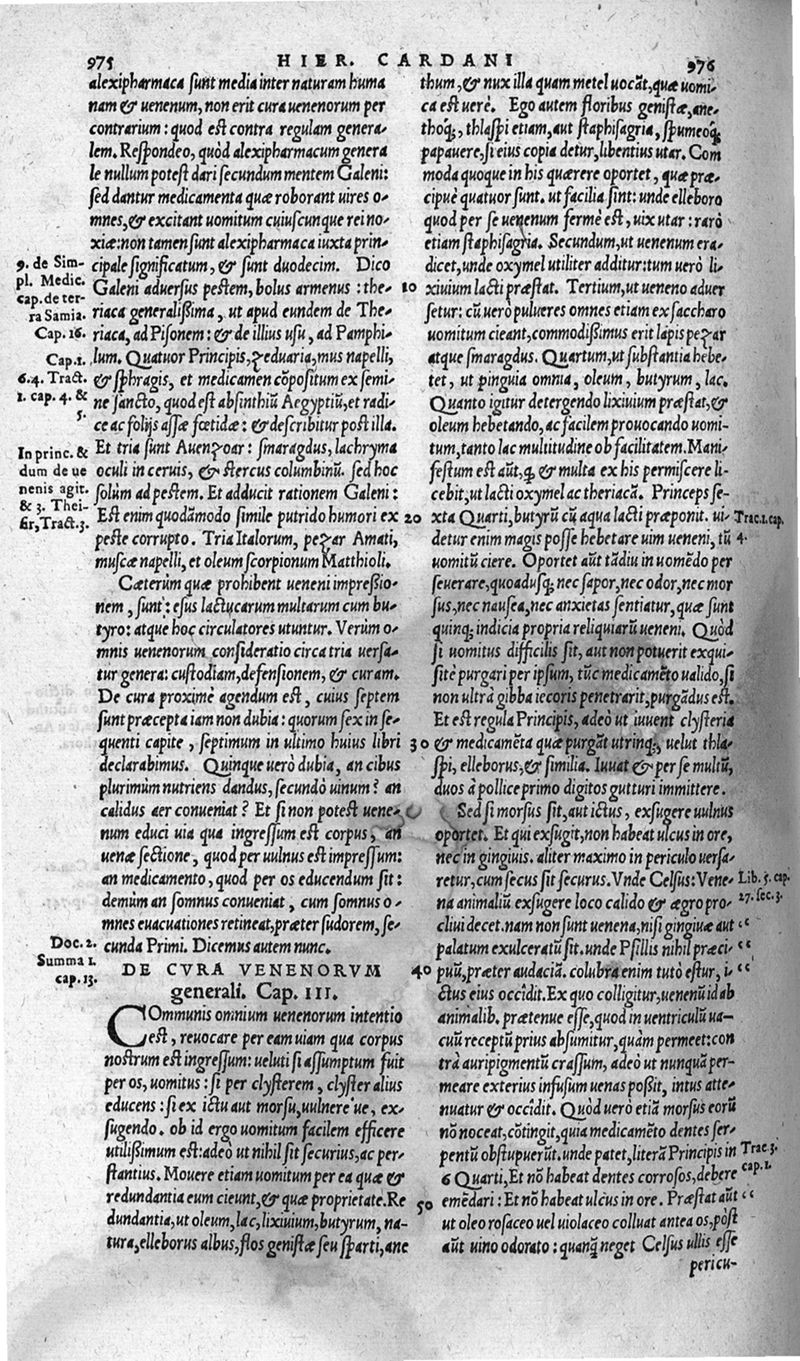 975
HIER. CARDANI
976
alexipharmaca sunt media inter naturam huma
nam & uenenum, non erit cura uenenorum per
contrarium: quod est contra regulam genera-
lem. Respondeo, quòd alexipharmacum genera
le nullum potest dari secundum mentem Galeni:
sed dantur medicamenta quæ roborant uires o-
mnes, & excitant uomitum cuiuscunque rei no-
xiæ: non tamen sunt alexipharmaca iuxta prin-
cipale significatum, & sunt duodecim. Dico
Galeni aduersus pestem, bolus armenus: the-
riaca generalißima, ut apud eundem de The-
riaca, ad Pisonem: & de illius usu, ad Pamphi-
lum. Quatuor Principis, zeduaria, mus napelli,
& sphragis, et medicamen cõpositum ex semi-
ne sancto, quod est absinthiũ Aegyptiũ, et radi-
ce ac folijs assæ fœtidæ: & describitur post illa.
Et tria sunt Auenzoar: smaragdus, lachryma
oculi in ceruis, & stercus columbinũ. sed hoc
solùm ad pestem. Et adducit rationem Galeni:
Est enim quodãmodo simile putrido humori ex
peste corrupto. Tria Italorum, pezar Amati,
muscæ napelli, et oleum scorpionum Matthioli.
Cæterùm quæ prohibent ueneni impreßio-
nem, sunt: esus lactucarum multarum cum bu-
tyro: atque hoc circulatores utuntur. Verùm o-
mnis uenenorum consideratio circa tria uersa-
tur genera: custodiam, defensionem, & curam.
De cura proximè agendum est, cuius septem
sunt præcepta iam non dubia: quorum sex in se-
quenti capite, septimum in ultimo huius libri
declarabimus. Quinque uerò dubia, an cibus
plurimùm nutriens dandus, secundò uinum? an
calidus aer conueniat? Et si non potest uene-
num educi uia qua ingressum est corpus, an
uenæ sectione, quod per uulnus est impressum:
an medicamento, quod per os educendum sit:
demùm an somnus conueniat, cum somnus o-
mnes euacuationes retineat, præter sudorem, se-
cunda Primi. Dicemus autem nunc.
DE CVRA VENENORVM
generali. Cap. III.
COmmunis omnium uenenorum intentio
est, reuocare per eam uiam qua corpus
nostrum est ingressum: ueluti si assumptum fuit
per os, uomitus: si per clysterem, clyster alius
educens: si ex ictu aut morsu, uulnere ue, ex-
sugendo. ob id ergo uomitum facilem efficere
utilißimum est: adeò ut nihil sit securius, ac per-
stantius. Mouere etiam uomitum per ea quæ &
redundantia eum cieunt, & quæ proprietate. Re
dundantia, ut oleum, lac, lixiuium, butyrum, na-
tura, elleborus albus, flos genistæ seu sparti, ane
9. de Sim-
pl. Medic.
cap. de ter-
ra Samia.
Cap. 16.
Cap. 1.
6. 4. Tract.
1. cap. 4. &
5.
In princ. &
dum de ue
nenis agit.
& 3. Thei-
sir, Tract. 3.
Doc. 2.
Summa 1.
cap. 13.
10
20
30
40
50
thum, & nux illa quam metel uocãt, quæ uomi-
ca est uerè. Ego autem floribus genistæ, ane-
thoq́;, thlaspi etiam, aut staphisagria, spumeoq́;
papauere, si eius copia detur, libentius utar. Com
moda quoque in his quærere oportet, quæ præ-
cipuè quatuor sunt. ut facilia sint: unde elleboro
quod per se uenenum fermè est, uix utar: rarò
etiam staphisagria. Secundum, ut uenenum era-
dicet, unde oxymel utiliter additur: tum uerò li-
xiuium lacti præstat. Tertium, ut ueneno aduer
setur: cũ uerò pulueres omnes etiam ex saccharo
uomitum cieant, commodißimus erit lapis pezar
atque smaragdus. Quartum, ut substantia hebe-
tet, ut pinguia omnia, oleum, butyrum, lac.
Quanto igitur detergendo lixiuium præstat, &
oleum hebetando, ac facilem prouocando uomi-
tum, tanto lac multitudine ob facilitatem. Mani-
festum est aũt, q̃ & multa ex his permiscere li-
cebit, ut lacti oxymel ac theriacã. Princeps se-
xta Quarti, butyrũ cũ aqua lacti præponit. ui-
detur enim magis posse hebetare uim ueneni, tũ
uomitũ ciere. Oportet aũt tãdiu in uomẽdo per
seuerare, quoadusq; nec sapor, nec odor, nec mor
sus, nec nausea, nec anxietas sentiatur, quæ sunt
quinq; indicia propria reliquiarũ ueneni. Quòd
si uomitus difficilis sit, aut non potuerit exqui-
sitè purgari per ipsum, tũc medicamẽto ualido, si
non ultrà gibba iecoris penetrarit, purgãdus est.
Et est regula Principis, adeò ut iuuent clysteria
& medicamẽta quæ purgãt utrinq;, uelut thla-
spi, elleborus, & similia. Iuuat & per se multũ,
duos à pollice primo digitos gutturi immittere.
Sed si morsus sit, aut ictus, exsugere uulnus
oportet. Et qui exsugit, non habeat ulcus in ore,
nec in gingiuis. aliter maximo in periculo uersa-
retur, cum secus sit securus. Vnde Celsus: Vene-
na animaliũ exsugere loco calido & ægro pro-
cliui decet. nam non sunt uenena, nisi gingiuæ aut
palatum exulceratũ sit. unde Psillis nihil præci-
puũ, præter audaciã. colubra enim tutò estur, i-
ctus eius occîdit. Ex quo colligitur, uenenũ id ab
animalib. prætenue esse, quod in uentriculũ ua-
cuũ receptũ prius absumitur, quàm permeet: con
trà auripigmentũ crassum, adeò ut nunquã per-
meare exterius infusum uenas poßit, intus atte-
nuatur & occîdit. Quòd uerò etiã morsus eorũ
nõ noceat, cõtingit, quia medicamẽto dentes ser-
pentũ obstupuerũt. unde patet, literã Principis in
6 Quarti, Et nõ habeat dentes corrosos, debere
emẽdari: Et nõ habeat ulcus in ore. Præstat aũt
ut oleo rosaceo uel uiolaceo colluat antea os, pòst
aũt uino odorato: quanq̃ neget Celsus ullis esse
pericu-
Trac. 1. cap.
4.
Lib. 5. cap.
27. sec. 3.
“
“
“
Trac. 3.
cap. 1.
“